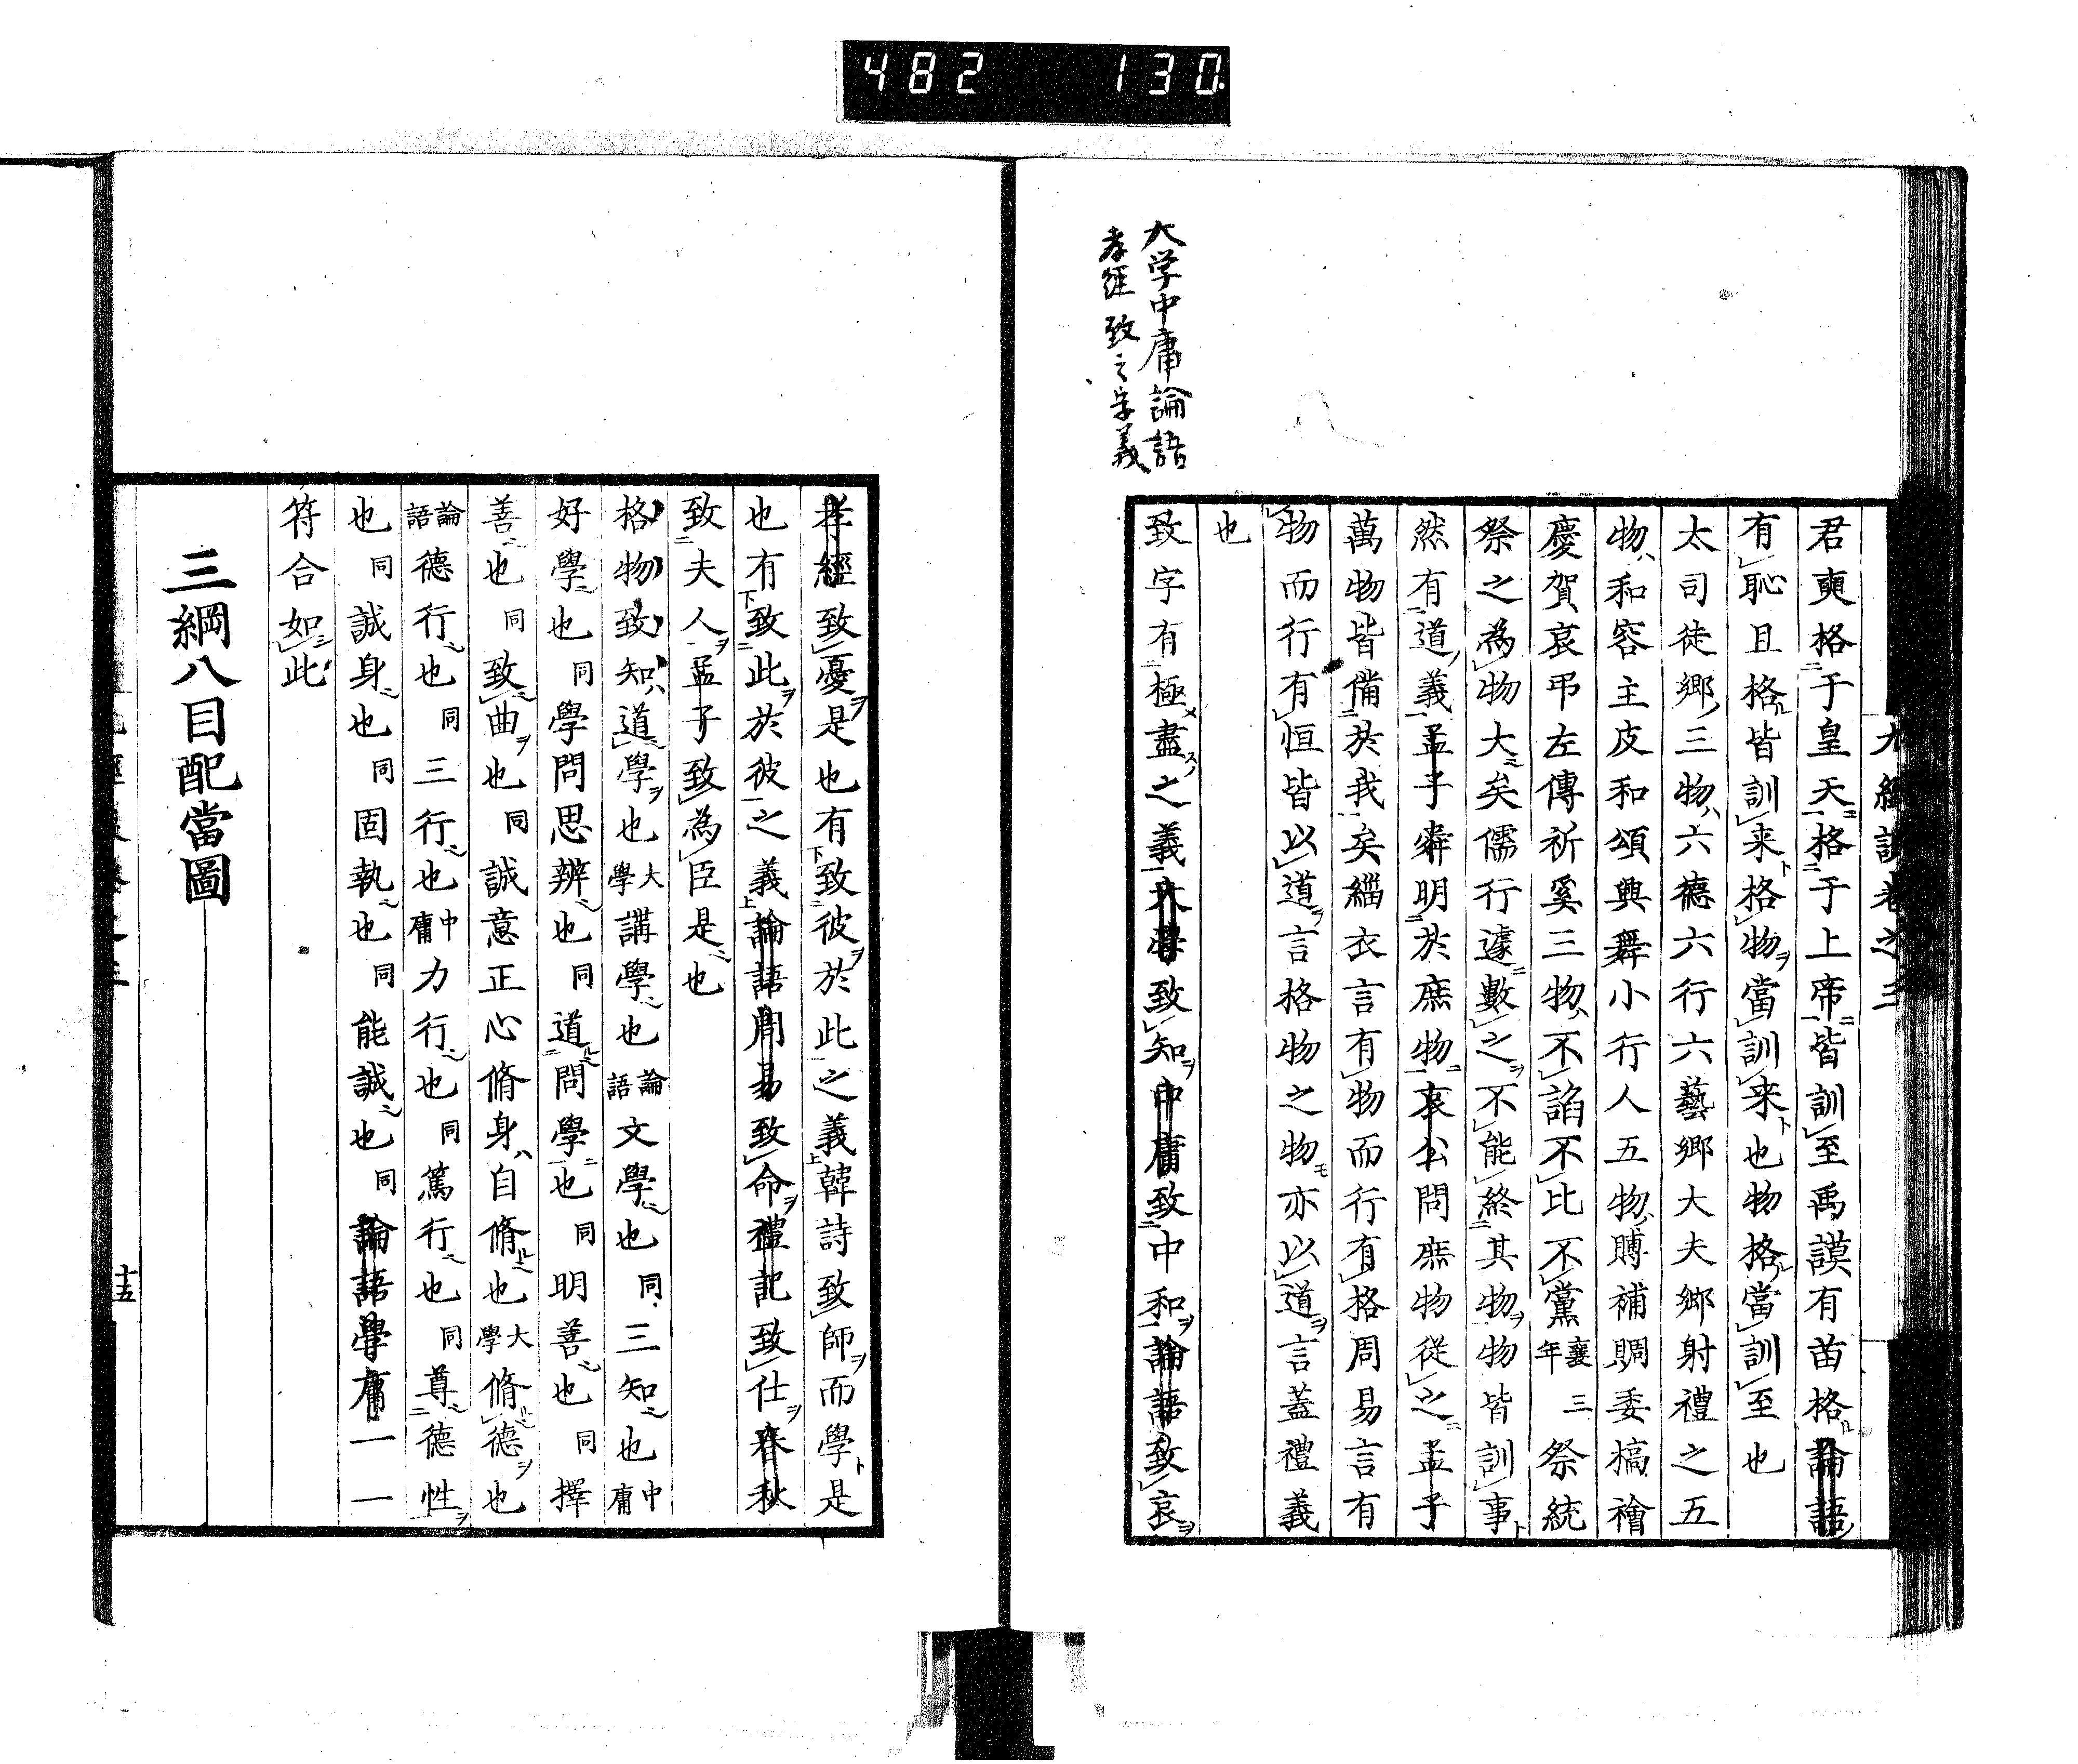 482 130
大学中庸論語
孝經致之字義
九經談卷之三
君奭格于皇天格于上帝皆訓至禹謨有苗格論語
有恥且格皆訓来格物當訓来也物格當訓至也
太司徒郷三物六德六行六藝郷大夫郷射禮之五
物和容主皮和頌興舞小行人五物賻補賙委槁禬
慶賀哀弔左傳祈奚三物不諂不比不黨襄三年祭統
祭之為物大矣儒行遽數之不能終其物物皆訓事
然有道義孟子舜明於庶物哀公問庶物從之孟子
萬物皆備於我矣緇衣言有物而行有格周易言有
物而行有恒皆以道言格物之物亦以道言蓋禮義
也
致字有極盡之義大學致知中庸致中和論語致哀
孝經致憂是也有致彼於此之義韓詩致師而學是
也有致此於彼之義論語周易致命禮記致仕春秋
致夫人孟子致為臣是也
格物致知道學也大學講學也論語文學也同三知也中庸
好學也同學問思辨也同道問學也同明善也同擇
善也同致曲也同誠意正心脩身自脩也大學脩德也
論語德行也同三行也中庸力行也同篤行也同尊德性
也同誠身也同固執也同能誠也同論語學庸一一
符合如此
三綱八目配當圖
十五